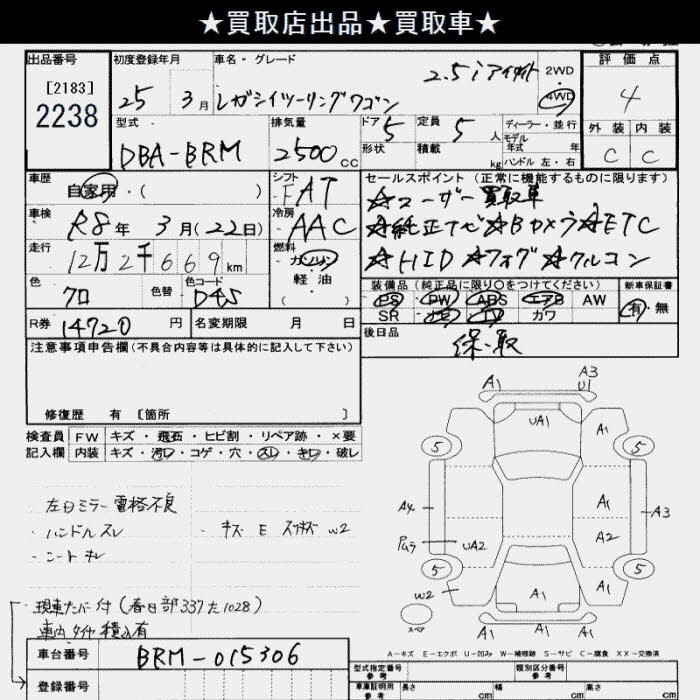 ★買取店出品★買取車★
出品番号 初度登録年月 車名・グレード 評価点
[2183] 2.5iアイサイト 2WD 4WD
2238 25 3月 レガシイツーリングワゴン 4
型式 排気量 ドア 5 定員 5人 ディーラー・並行 外装 内装
DBA-BRM 2500cc 形状 積載 kg モデル年式 年 ハンドル 左・右 C C
車歴 自家用・( ) シフト FAT セールスポイント(正常に機能するものに限ります)
☆ユーザー買取車
車検 R8年 3月(22日) 冷房 AAC ☆純正ナビ☆Bカメラ☆ETC
走行 12万2千669km 燃料 ガソリン ☆HID☆フォグ☆クルコン
軽油
色 クロ 色替 色コード D4S ( ) 装備品(純正品に限り○をつけてください) 新車保証書
PS PW ABS エアB AW 有・無
R券 14720円 名変期限 月 日 SR ナビ TV カワ
注意事項申告欄(不具合内容等は具体的に記入して下さい) 後日品 保、取
修復歴 有 [箇所 ]
検査員 FW キズ・飛石・ヒビ割・リペア跡・×要
記入欄 内装 キズ・汚レ・コゲ・穴・スレ・キレ・破レ
左ドミラー電格不良
・ハンドルスレ ・キズ E スリキズ W2
・シートキレ
現車ナンバー付(春日部337た1028)
車内タイヤ積込有
車台番号 BRM-015306
登録番号
A1 A3 U1
UA1 A1
5 5
AX A1 A3
UA2 A2
5 5
W2 A1 A1
スペア A1 A1 A1
A-キズ E-エクボ U-凹み W-補修跡 S-サビ C-腐食 XX-交換済
型式指定番号 参考 類別区分番号 参考
車庫証明用 参考 長さ cm 幅 cm 高さ cm